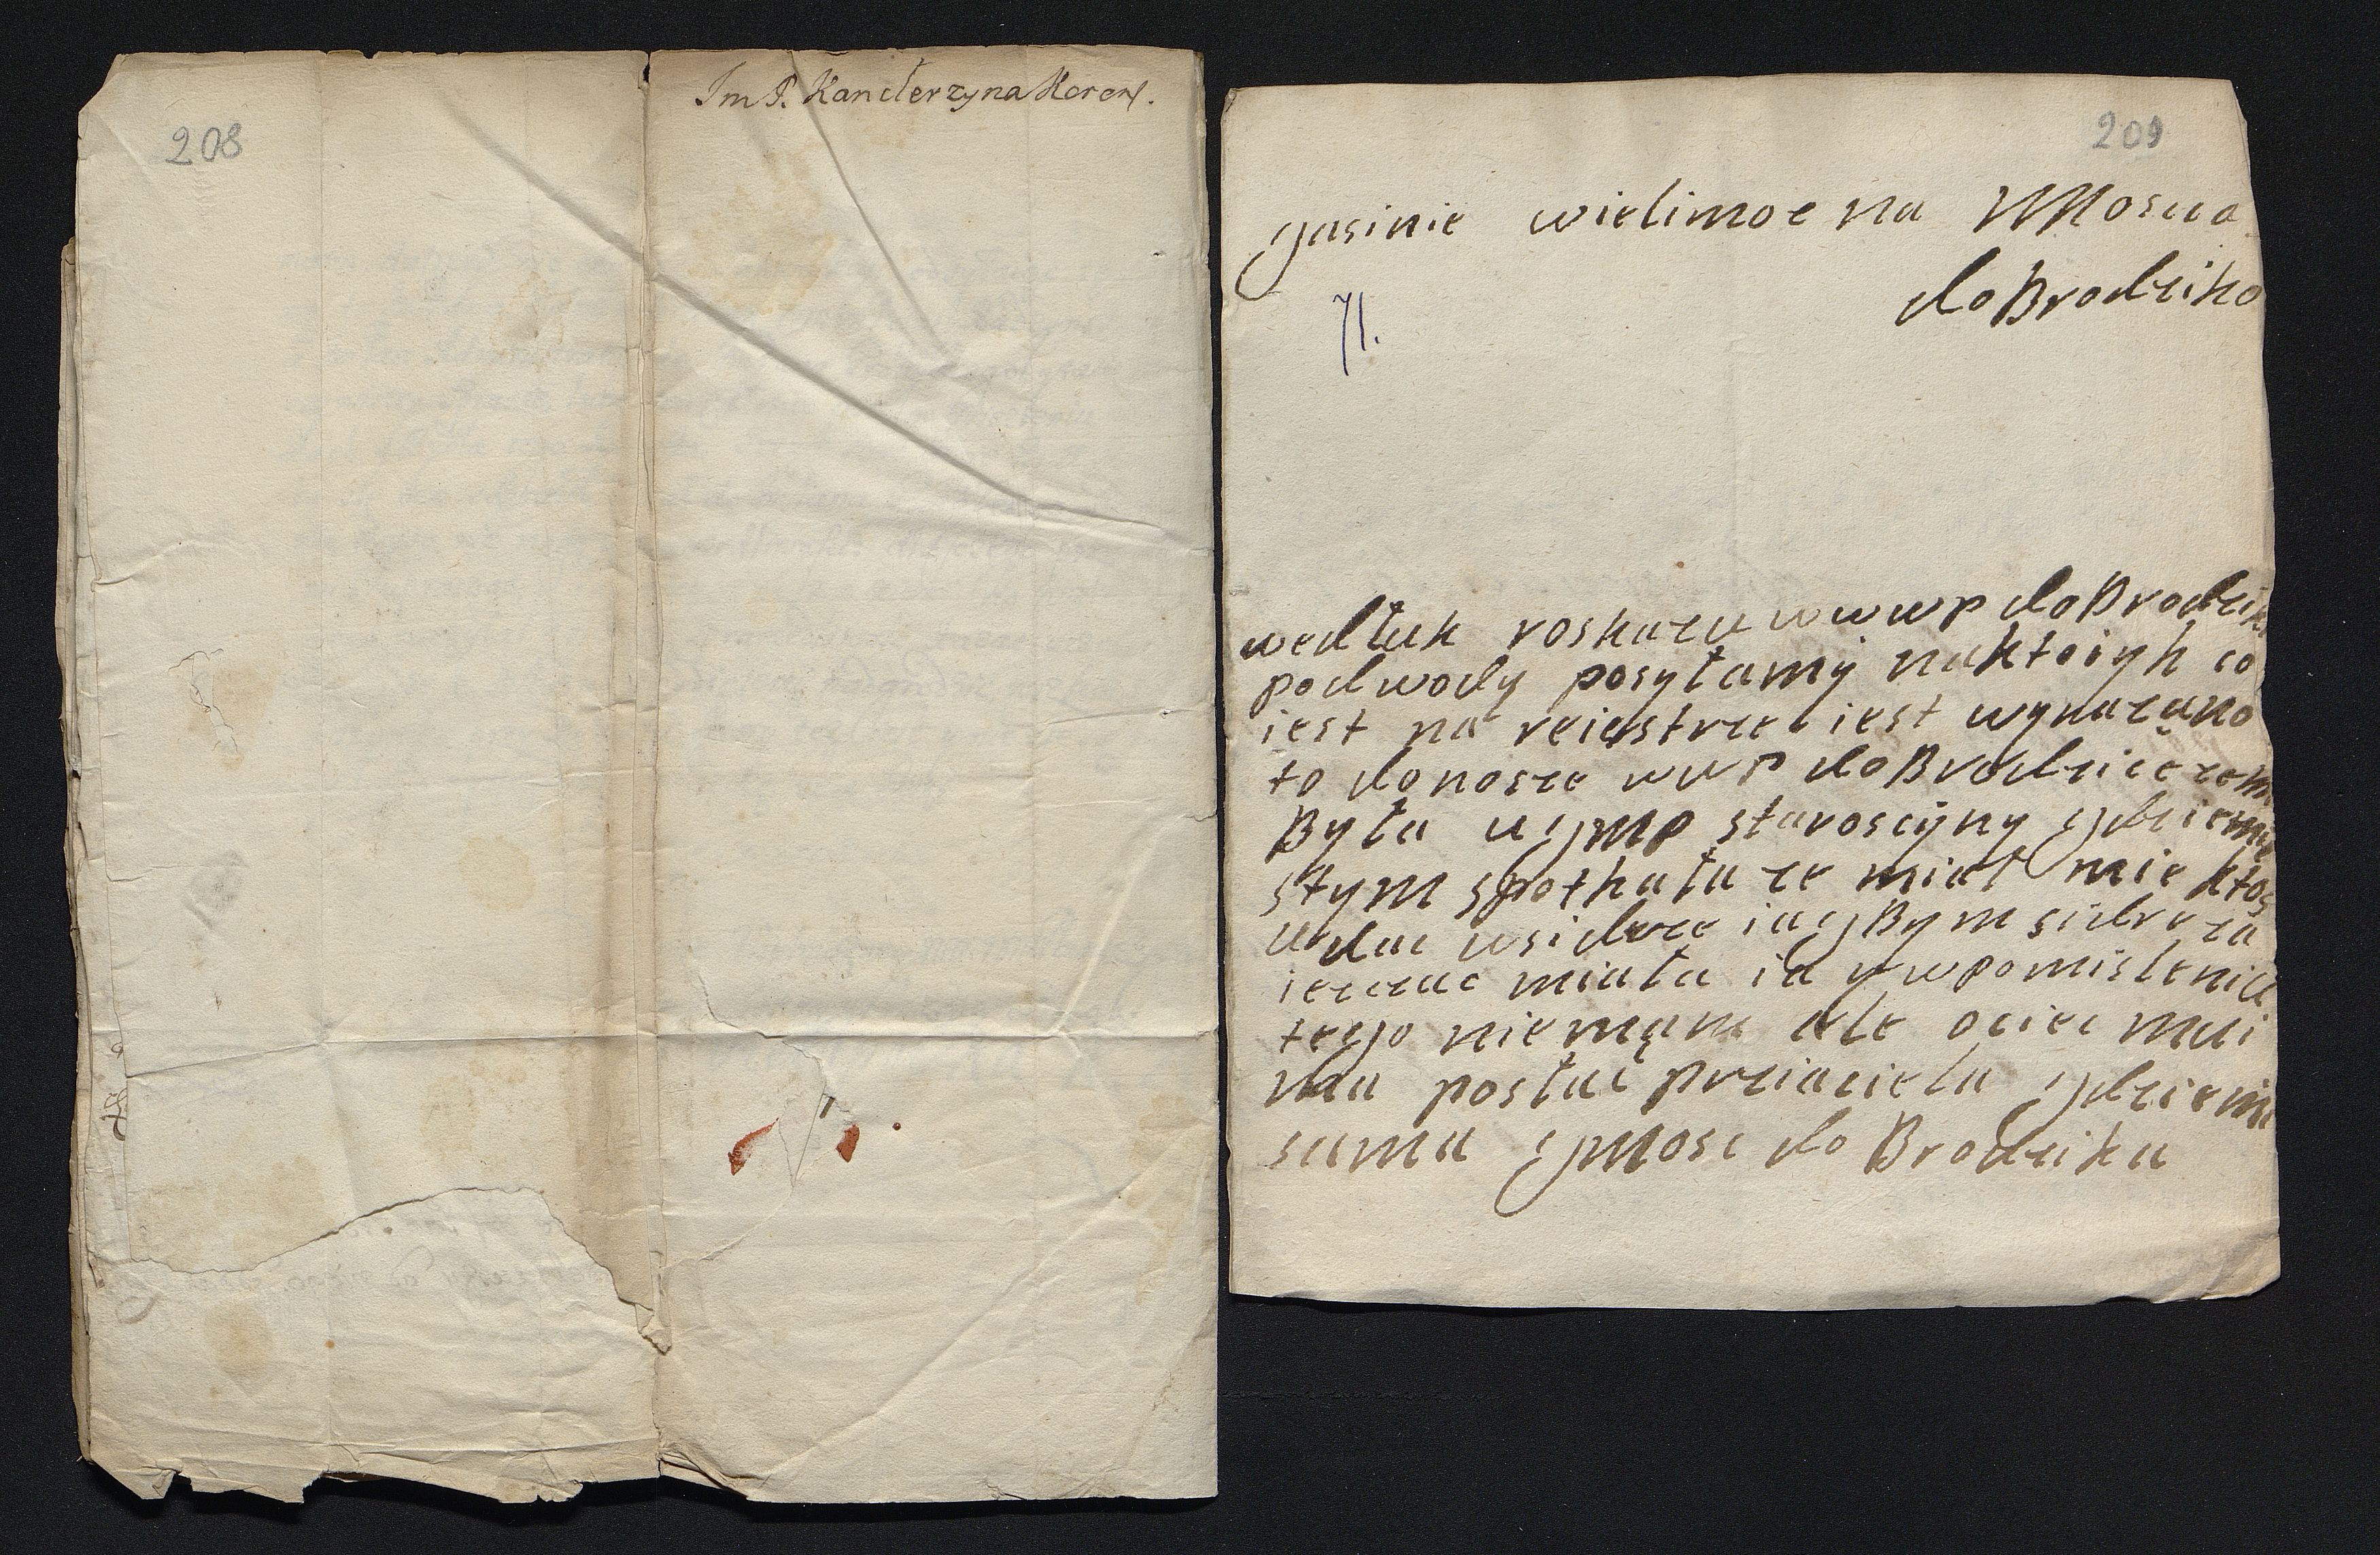 208
Im P. Kanclerzyna Koron.
209
jasinie wielimoe na MMosua
doBrodziko
71.
wedłuk roskazu wwwp doBrodziki
podwody posyłamy naktoryh co
iest na reiestrze iest wynazano
to donosze wwp doBrodzice zem
Była u jmp staroscyny gdziem
stym spotkała ze miał mie ktos
udac wsidrze iagBym sidro za
iezzac miała ia y wpomisleniu
tego niemam ale ociec mui
ma posłac prziaciela gdziemi
sama jmosc do Brodzika